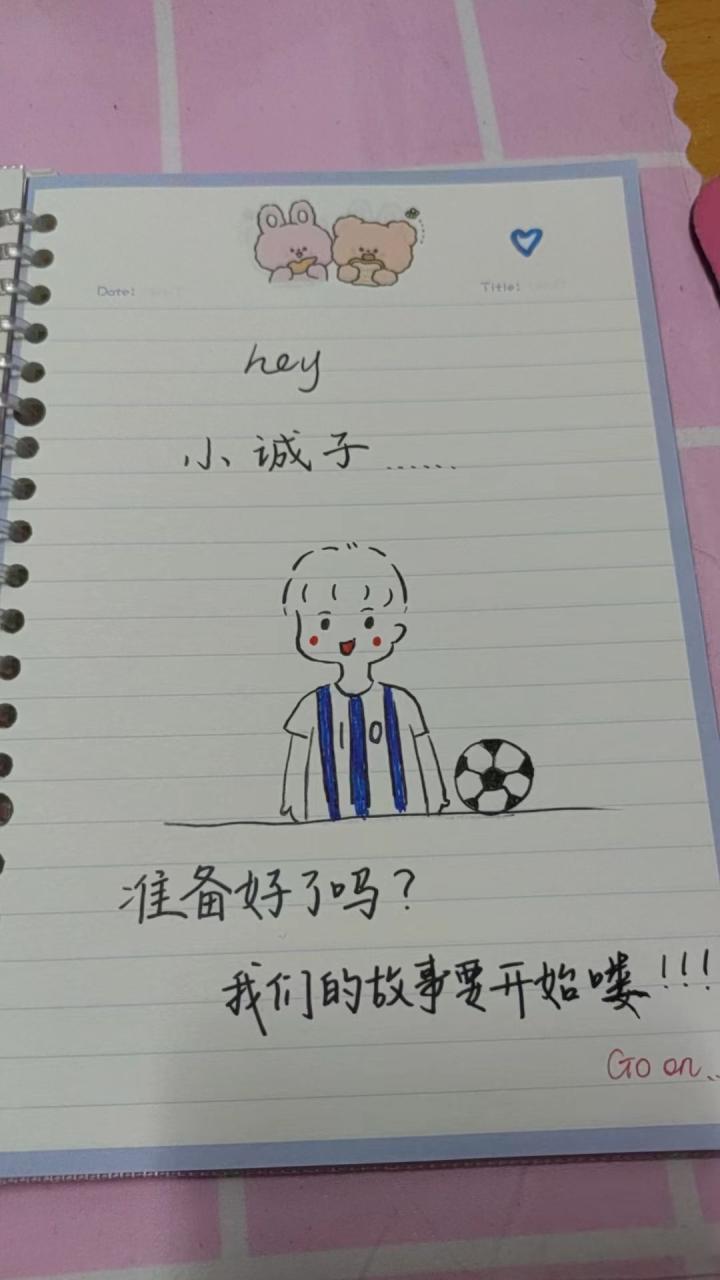 Date: Title:
hey
小诚子......
10
准备好了吗？
我们的故事要开始喽!!!
Go on..